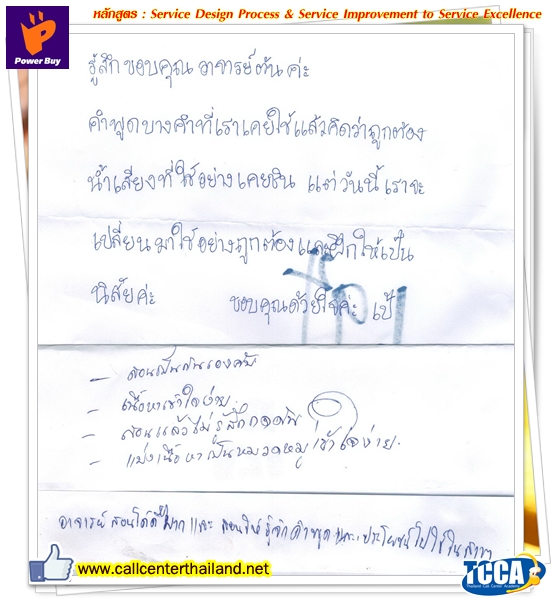 หลักสูตร : Service Design Process & Service Improvement to Service Excellence
Power Buy
รู้สึกขอบคุณอาจารย์ต้นค่ะ
คำพูดบางคำที่เราเคยใช้แล้วคิดว่าถูกต้อง
น้ำเสียงที่ใช้อย่างเคยชิน แต่วันนี้เราจะ
เปลี่ยนมาใช้อย่างถูกต้องและฝึกให้เป็น
นิสัยค่ะ ขอบคุณด้วยใจค่ะ เป้
- สอนเป็นกันเองครับ
- เนื้อหาเข้าใจง่าย.
- สอนแล้วไม่รู้สึกกดดัน
- แบ่งเนื้อหาเป็นหมวดหมู่ เข้าใจง่าย.
อาจารย์สอนได้ดีมาก และสอนให้รู้จักคำพูด และประโยชน์ไปใช้ใน
www.callcenterthailand.net
TCCA
Thailand Call Center Academy